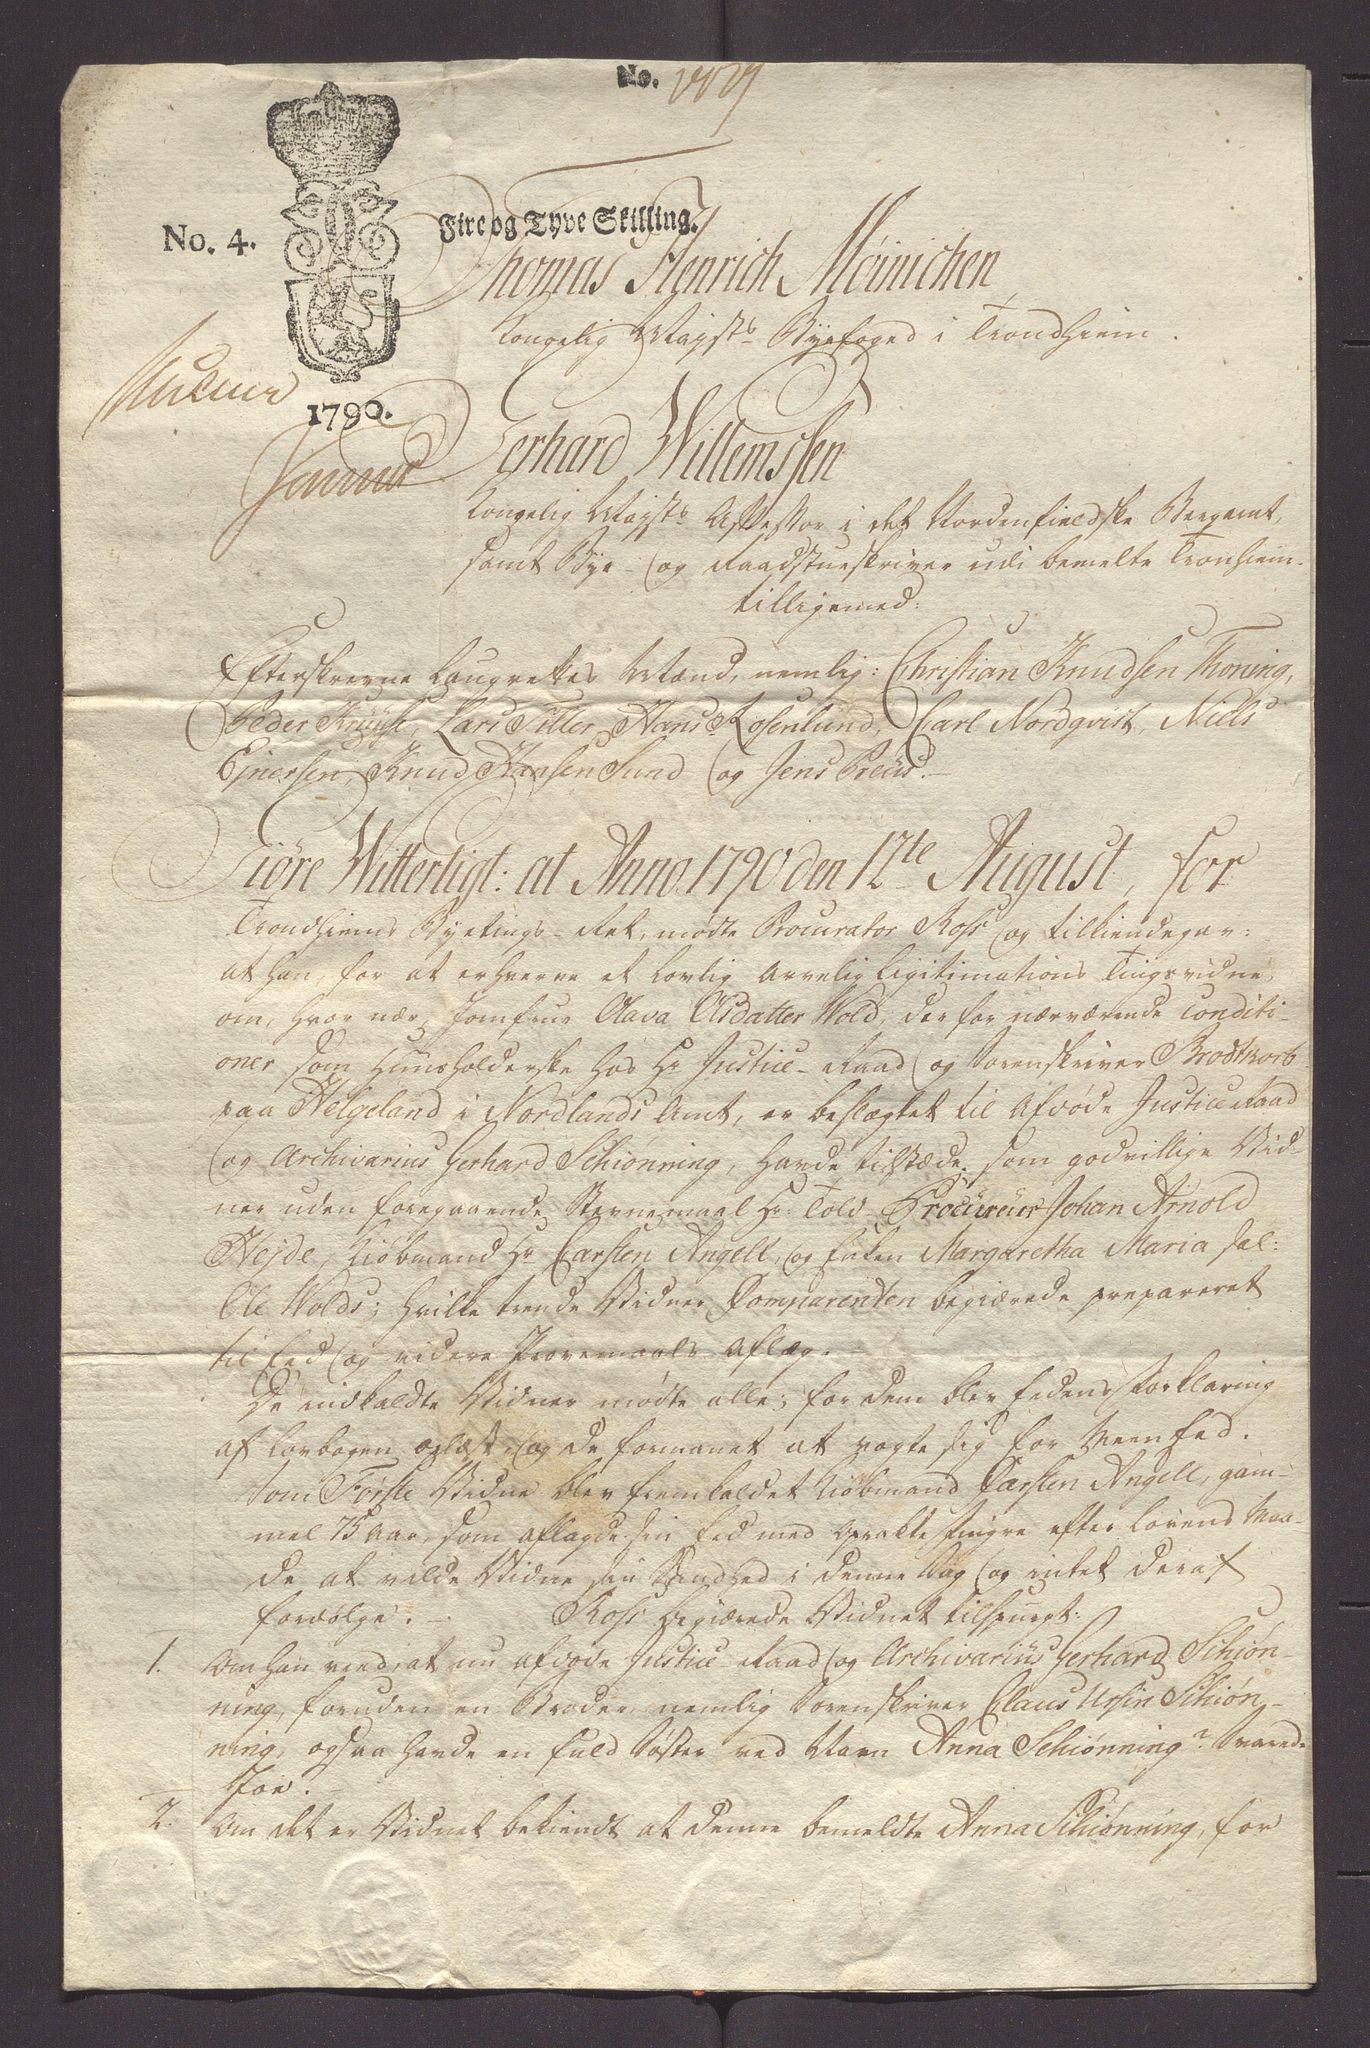 No.
No. 4.
Fire og Tyve Skilling.
1790.
Thomas Henrich Møinichen
Kongelig Mayst:s Byefoged i Trondhiem.
Gerhard Willemssen
Kongelig Mayst:s Assessor i det Nordenfieldske Bergamt,
samt Bye- og Raadstueskriver udi bemelte Tronhiem
tilligemed:
Efterskrevne Laugrettes Mænd, nemlig: Christian Knudsen Thoning,
Peder Kruuse, Lars Tiller, Hans Rosenlund, Carl Nordqvist, Niels
Ejnersen, Knud Hansen Sund og Jens Preus.
Giøre Witterligt: at Anno 1790 den 12te August, for
Trondhiems Byetings-Ret, mødte Procurator Ross og tilkiendegav:
at han, for at erhverve et lovlig Arvelig Legitimations Tingsvidne,
om, hvor nær Jomfrue Aava Olsdatter Wold, der for nærværende Conditi-
oner som Huusholderske hos Hr Justice-Raad og Sorenskriver Brodtkorb
paa Helgeland i Nordlands Amt, er beslægtet til afdøde Justice Raad
og Archivarius Gerhard Schiønning, havde tilstæde, som godvillige Vid-
ner uden foregaaende Stevnemaal Hr: Told-Procureur Johan Arnold
Hejde, Kiøbmand Hr Carsten Angell, og Enken Margaretha Maria sal:
Ole Wolds; hvilke trende Vidner Comparenten begiærede prepareret
til Eed og videre Provemaals Aflæg.
De indkaldte Vidner mødte alle; for dem blev Eedens Forklaring
af Lovbogen oplæst, og de formanet at vogte sig for Meen Eed.
Som Første Vidne blev fremkaldet Kiøbmand Carsten Angell, gam-
mel 75 Aar, som aflagde sin Eed med oprakte Fingre efter Lovens Maa-
de at vilde Vidne sin Sandhed i denne Sag og intet deraf
fordølge. - Ross begiærede Vidnet tilspurgt:
1. Om han veed, at nu afdøde Justice-Raad og Archivarius Gerhard Schiøn-
ning, foruden en Broder, nemlig Sorenskriver Claus Ursin Schiøn-
ning, ogsaa havde en fuld Søster ved Navn Anna Schiønning? Svarede
Joe.
2. Om det er Vidnet bekiendt at denne bemeldte Anna Schiønning, for